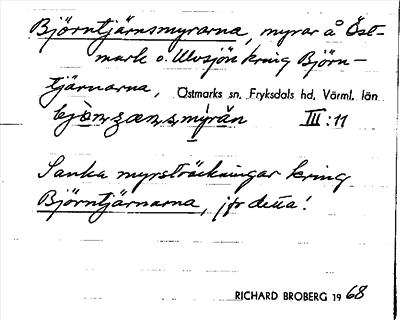 Björntjärnsmyrarna, myrar å Öst-
mark o. Ulvsjön kring Björn-
tjärnarna, Östmarks sn, Fryksdals hd, Värml. län
III:11
Sanka myrsträckningar kring
Björntjärnarna, jfr detta!
RICHARD BROBERG 1968